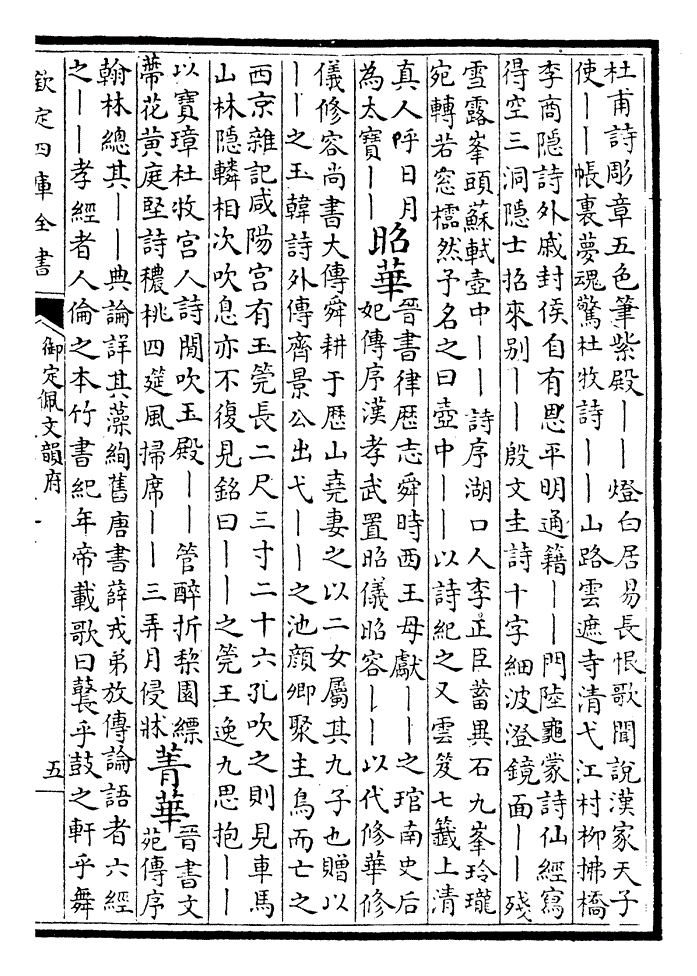 杜甫詩彫章五色筆紫殿——燈白居易長恨歌聞說漢家天子
使——帳裏夢魂驚杜牧詩——山路雲遮寺清弋江村柳拂橋
李商隱詩外戚封侯自有恩平明通籍——門陸龜蒙詩仙經寫
得空三洞隱士招來别——殷文圭詩十字細波澄鏡面——殘
雪露峯頭蘇軾壺中——詩序湖口人李正臣蓄異石九峯玲瓏
宛轉若窓櫺然子名之曰壺中——以詩紀之又雲笈七籤上清
真人呼日月
為太寶——
昭華
晉書律歴志舜時西王母獻——之琯南史后
妃傳序漢孝武置昭儀昭容——以代修華修
儀修容尚書大傳舜耕于歴山堯妻之以二女屬其九子也贈以
——之玉韓詩外傳齊景公出弋——之池顔卿聚主鳥而亡之
西京雜記咸陽宫有玉筦長二尺三寸二十六孔吹之則見車馬
山林隱轔相次吹息亦不復見銘曰——之筦王逸九思抱——
以寶璋杜牧宫人詩閒吹玉殿——管醉折梨園縹
蔕花黄庭堅詩穠桃四筵風掃席——三弄月侵牀
菁華
晉書文
苑傳序
翰林總其——典論詳其藻絢舊唐書薛戎弟放傳論語者六經
之——孝經者人倫之本竹書紀年帝載歌曰鼚乎鼓之軒乎舞
欽定四庫全書
御定佩文韻府
五